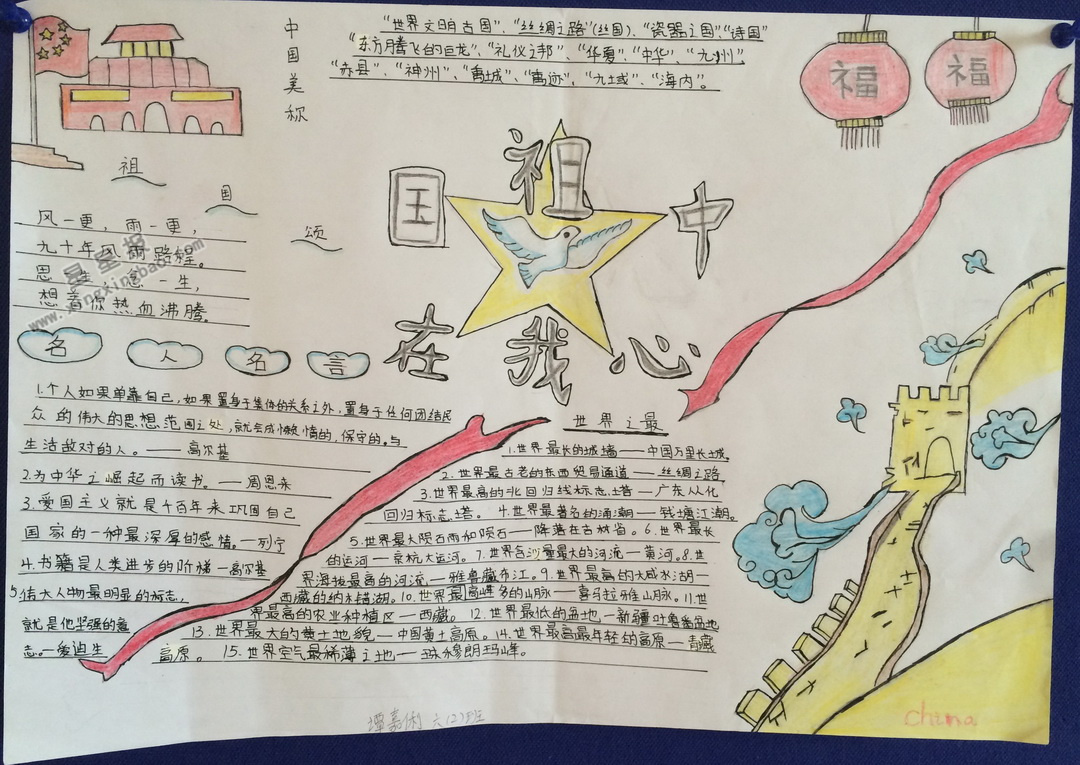 中国美称
“世界文明古国”、“丝绸之路”(丝国)、“瓷器之国”、“诗国”
“东方腾飞的巨龙”、“礼仪之邦”、“华夏”、“中华”、“九州”,
“赤县”、“神州”、“禹城”、“禹迹”、“九域”、“海内”。
福
福
祖国颂
风一更，雨一更，
九十年风雨路程。
思一生，念一生，
想着你热血沸腾。
星星报
www.xingxingbao.com
祖国在我心中
名人名言
1.个人如果单靠自己，如果置身于集体的关系之外，置身于任何团结民
众的伟大的思想范围之处，就会成懒惰的，保守的。与
生活敌对的人。——高尔基
2.为中华之崛起而读书——周恩来
3.爱国主义就是千百年来巩固自己
国家的一种最深厚的感情。—列宁
4.书籍是人类进步的阶梯—高尔基
5.伟大人物最明显的标志，
就是他坚强的意
志。—爱迪生
世界之最
1.世界最长的城墙——中国万里长城
2.世界最古老的东西贸易通道——丝绸之路
3.世界最高的北回归线标志塔——广东从化
回归标志塔。4.世界最著名的涌潮——钱塘江潮。
5.世界最大陨石雨和陨石——降落在吉林省。6.世界最长
的运河—京杭大运河。7.世界含沙量最大的河流—黄河。8.世
界海拔最高的河流—雅鲁藏布江。9.世界最高的大咸水湖—
西藏的纳木错湖。10.世界最高峰多的山脉—喜马拉雅山脉。11.世
界最高的农业种植区—西藏。12.世界最低的盆地—新疆吐鲁番盆地
13.世界最大的黄土地貌—中国黄土高原。14.世界最高最年轻的高原—青藏
高原。15.世界空气最稀薄之地—珠穆朗玛峰。
谭嘉俐 六(2)班
China